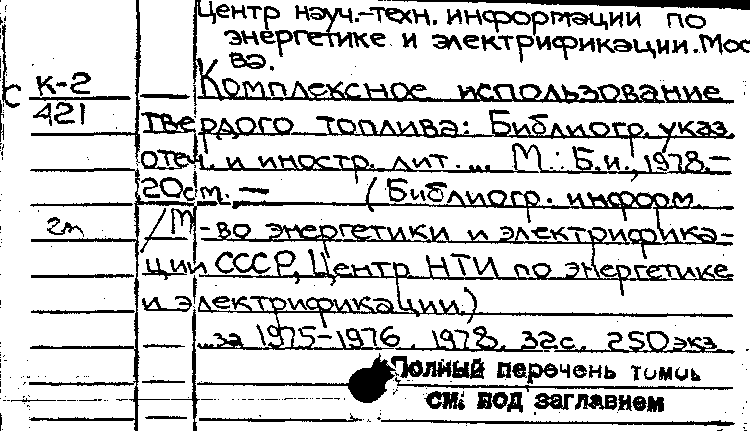 Центр науч.-техн. информации по
энергетике и электрификации. Мос
ва.
С К-2 Комплексное использование
421 твердого топлива: Библиогр. указ.
отеч. и иностр. лит. ... М.: Б.и., 1978.-
20см. — (Библиогр. информ.
2т /М-во энергетики и электрифика-
ции СССР, Центр НТИ по энергетике
и электрификации.)
...за 1975-1976. 1978. 32с. 250экз
Полный перечень томов
см. под заглавием